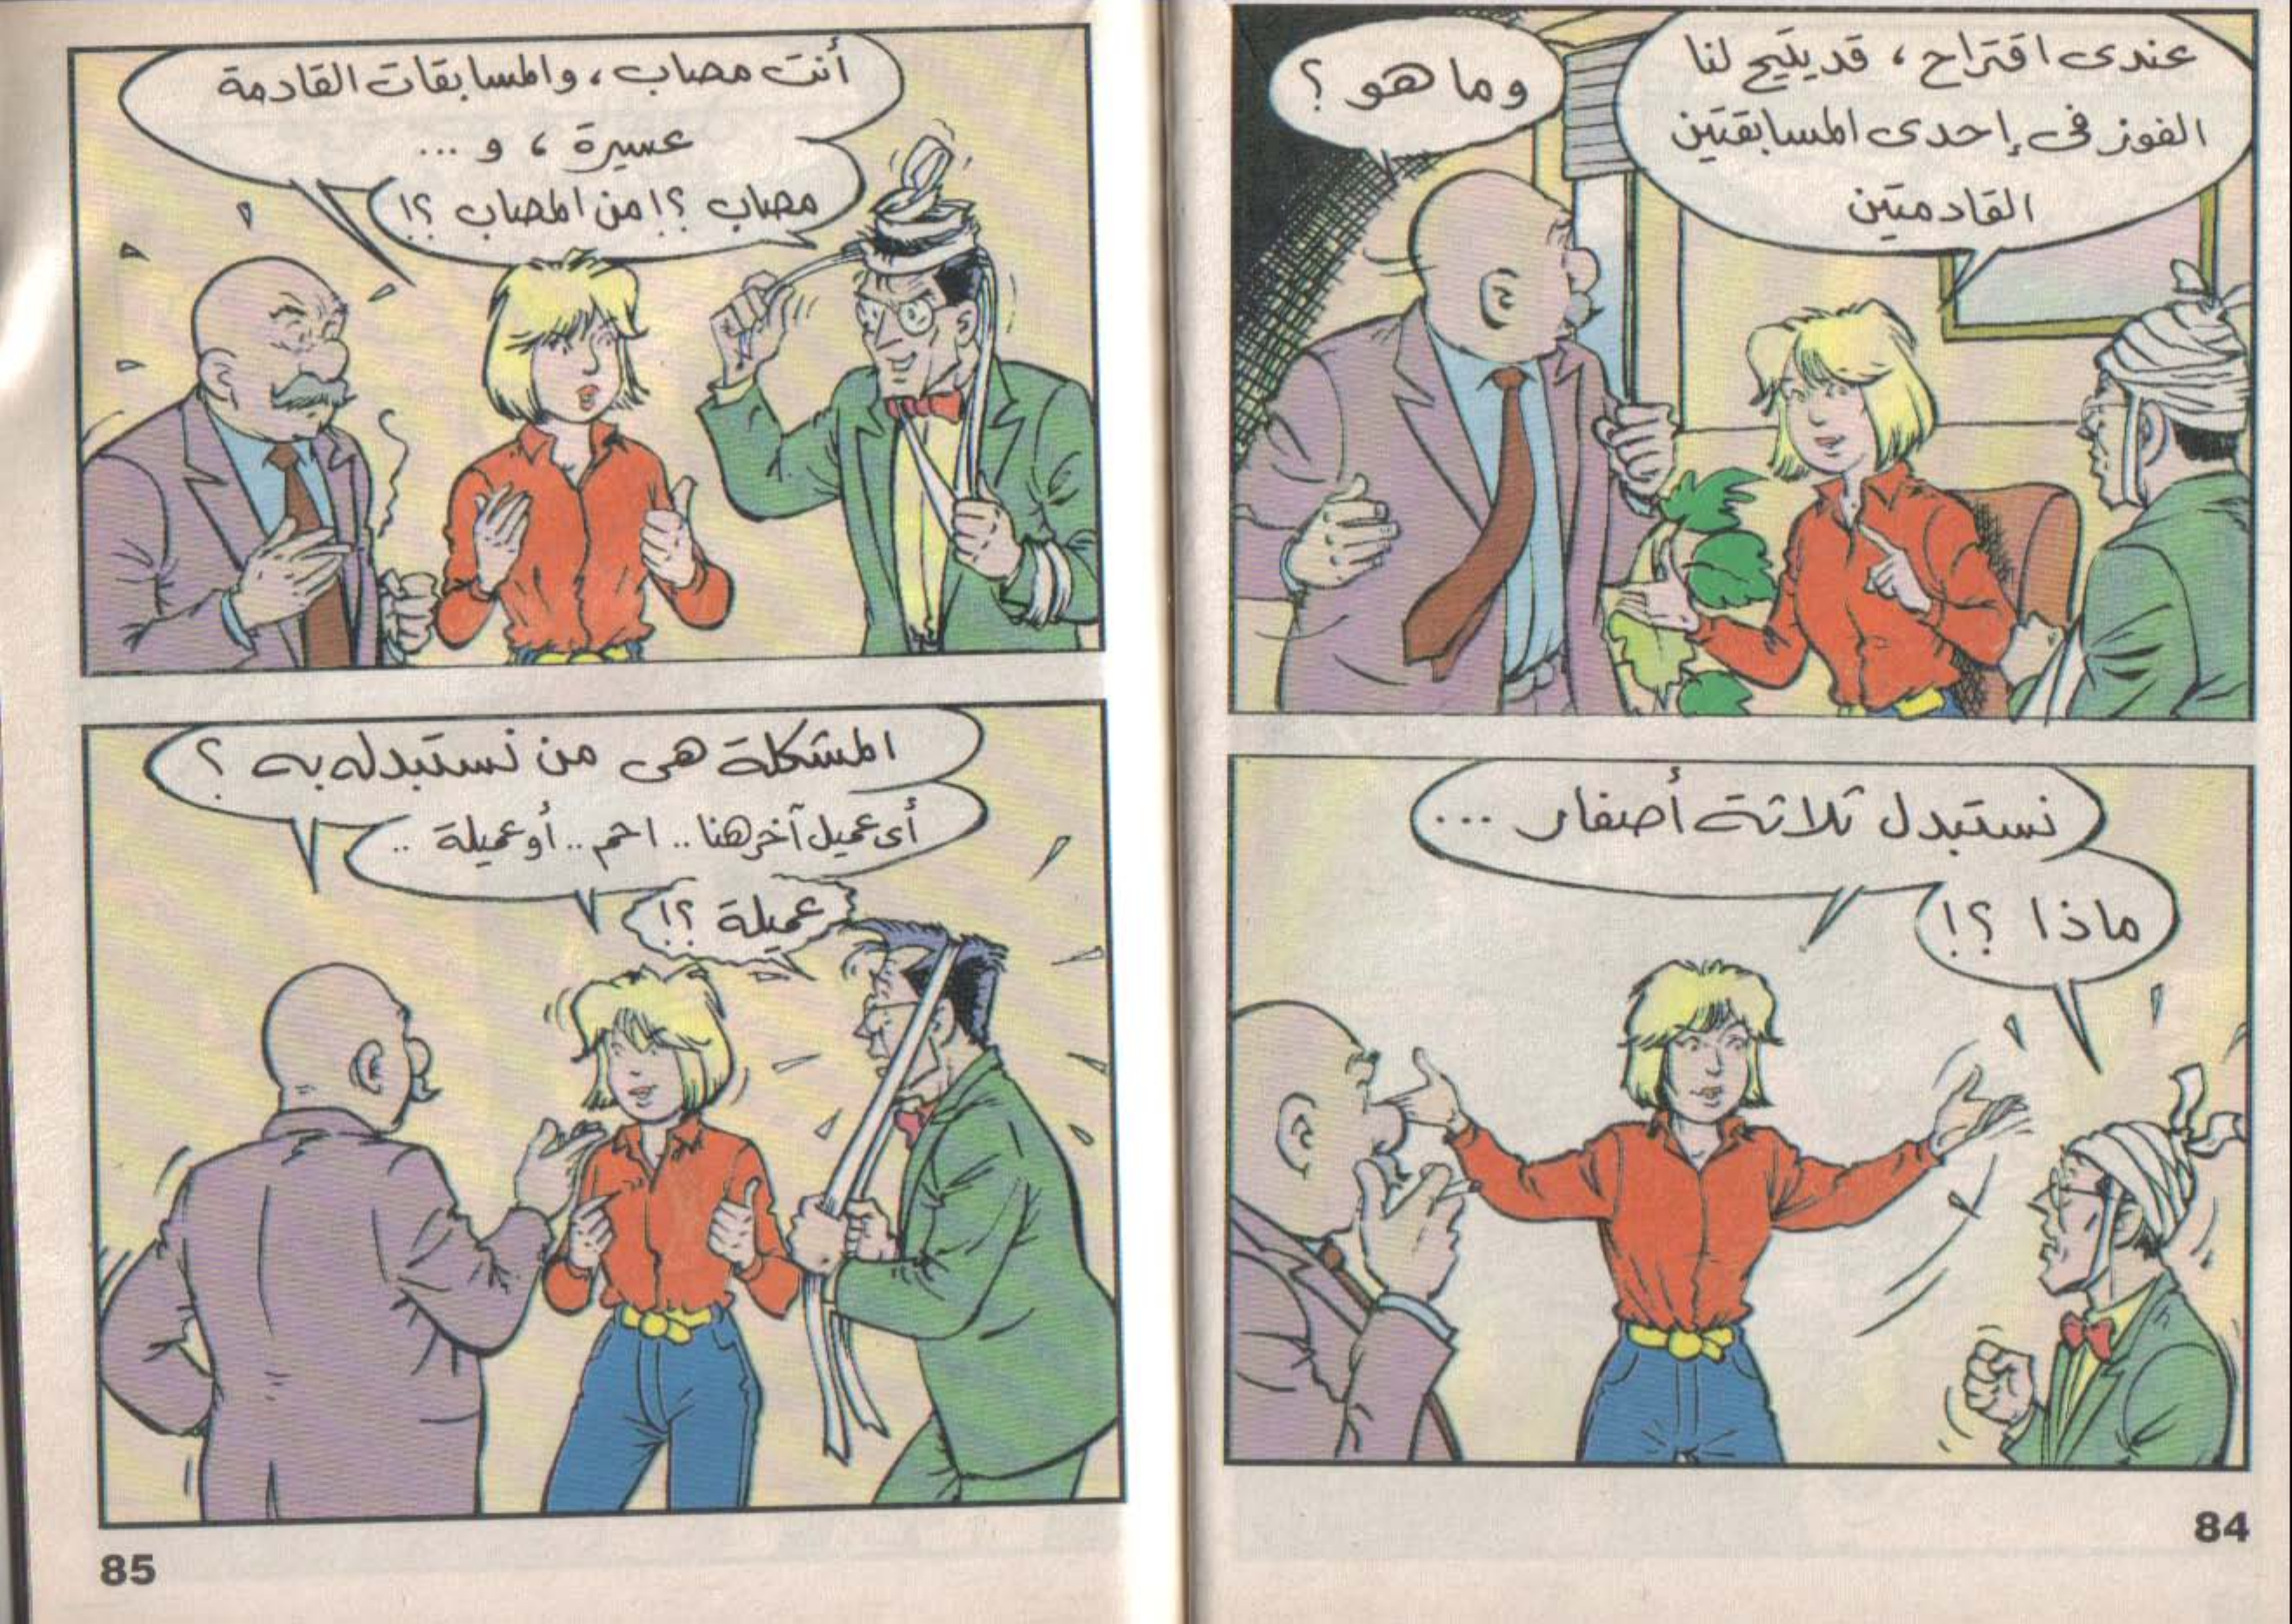 عندى اقتراح ، قد يتيح لنا
الفوز فى إحدى المسابقتين
القادمتين
وما هو ؟
نستبدل ثلاثة أصفار ...
ماذا ؟!
84
أنت مصاب ، والمسابقات القادمة
عسيرة ، و ...
مصاب ؟! من المصاب ؟!
المشكلة هى من نستبدله به ؟
أى عميل آخر هنا .. احم .. أو عميلة ..
عميلة ؟!
85